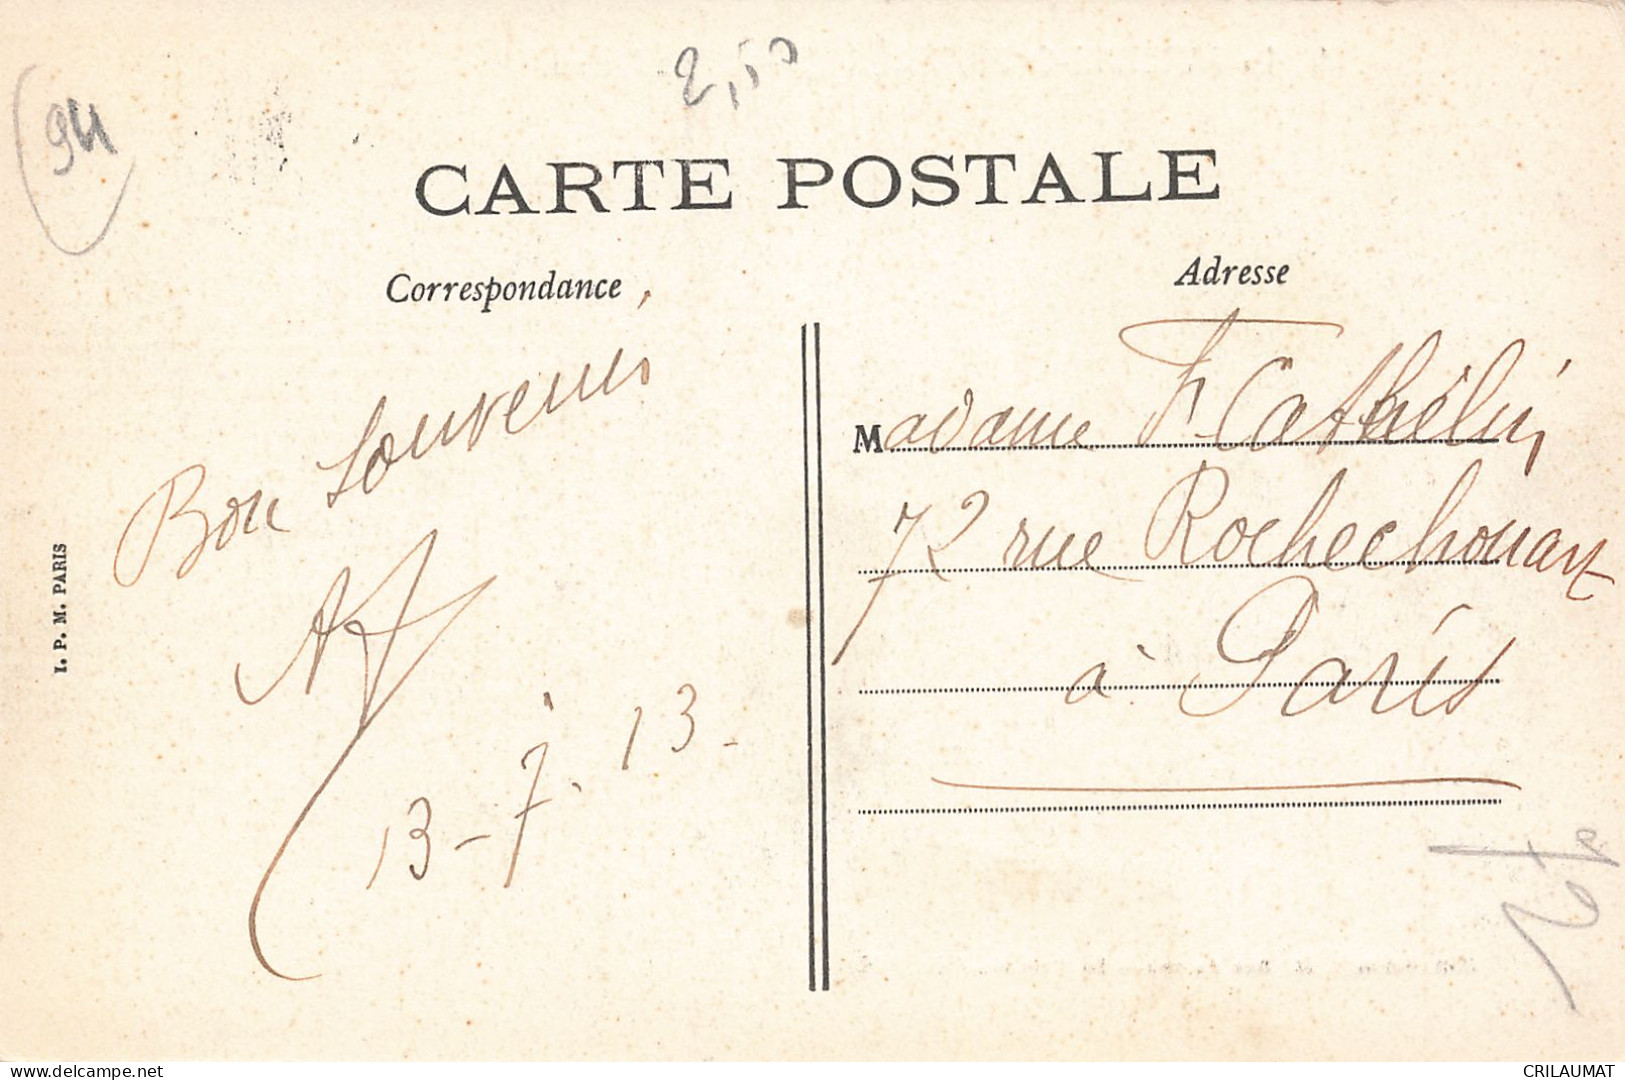 94
2,50
CARTE POSTALE
Correspondance
Adresse
Bon Souvenir
13-7.13-
Madame F. Cathélin
72 rue Rochechouart
à Paris
I. P. M. PARIS
www.delcampe.net
CRILAUMAT